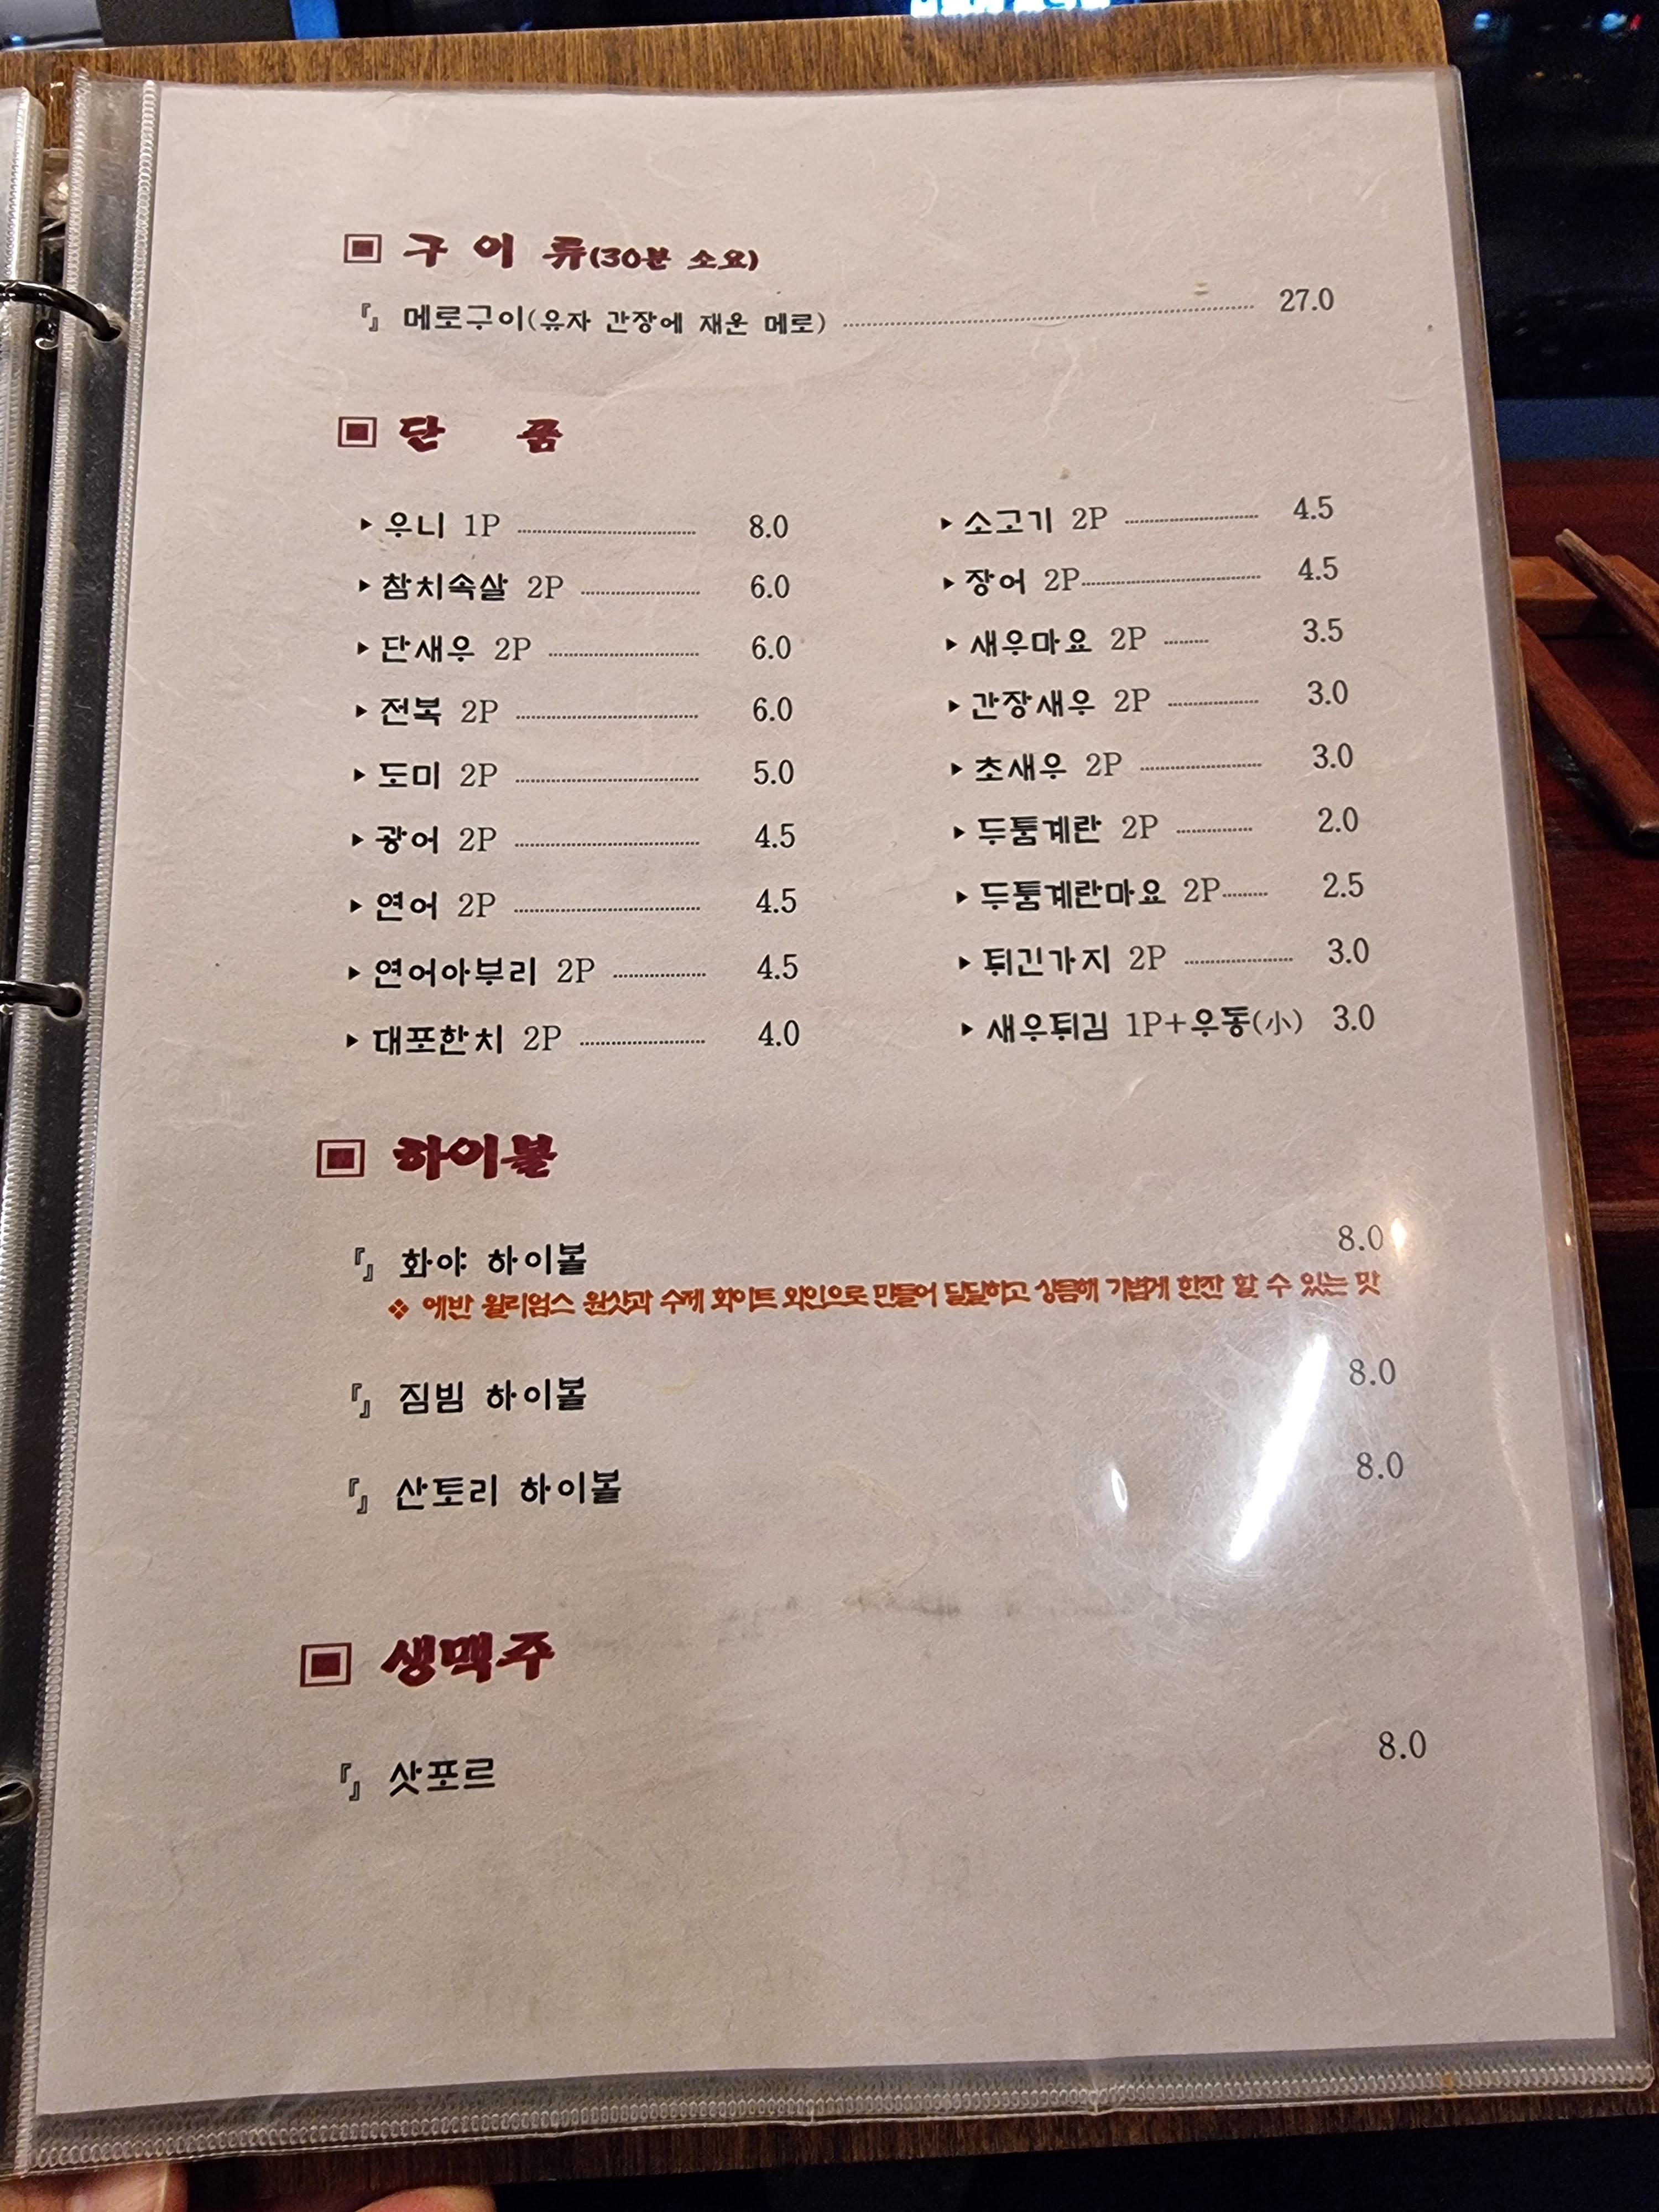 ▣ 구 이 류(30분 소요)
『』 메로구이(유자 간장에 재운 메로) 27.0
▣ 단 품
▸ 우니 1P 8.0
▸ 참치속살 2P 6.0
▸ 단새우 2P 6.0
▸ 전복 2P 6.0
▸ 도미 2P 5.0
▸ 광어 2P 4.5
▸ 연어 2P 4.5
▸ 연어아부리 2P 4.5
▸ 대포한치 2P 4.0
▸ 소고기 2P 4.5
▸ 장어 2P 4.5
▸ 새우마요 2P 3.5
▸ 간장새우 2P 3.0
▸ 초새우 2P 3.0
▸ 두툼계란 2P 2.0
▸ 두툼계란마요 2P 2.5
▸ 튀긴가지 2P 3.0
▸ 새우튀김 1P+우동(小) 3.0
▣ 하이볼
『』 화야 하이볼 8.0
❖ 에반 윌리엄스 원샷과 수제 화이트 와인으로 만들어 달달하고 상큼해 가볍게 한잔 할 수 있는 맛
『』 짐빔 하이볼 8.0
『』 산토리 하이볼 8.0
▣ 생맥주
『』 삿포르 8.0